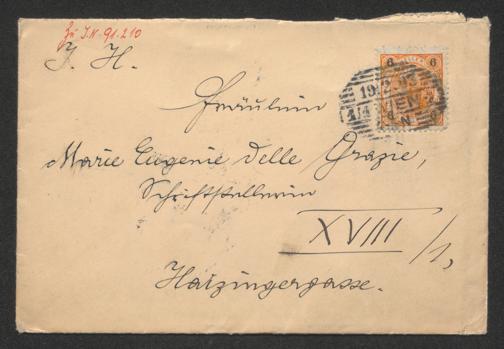 Zu I.N. 91.210
I. H.
6 6
19.2.03
1/1 WIEN
Fräulein
Marie Eugenie delle Grazie,
Schriftstellerin
XVIII /1,
Haizingergasse.